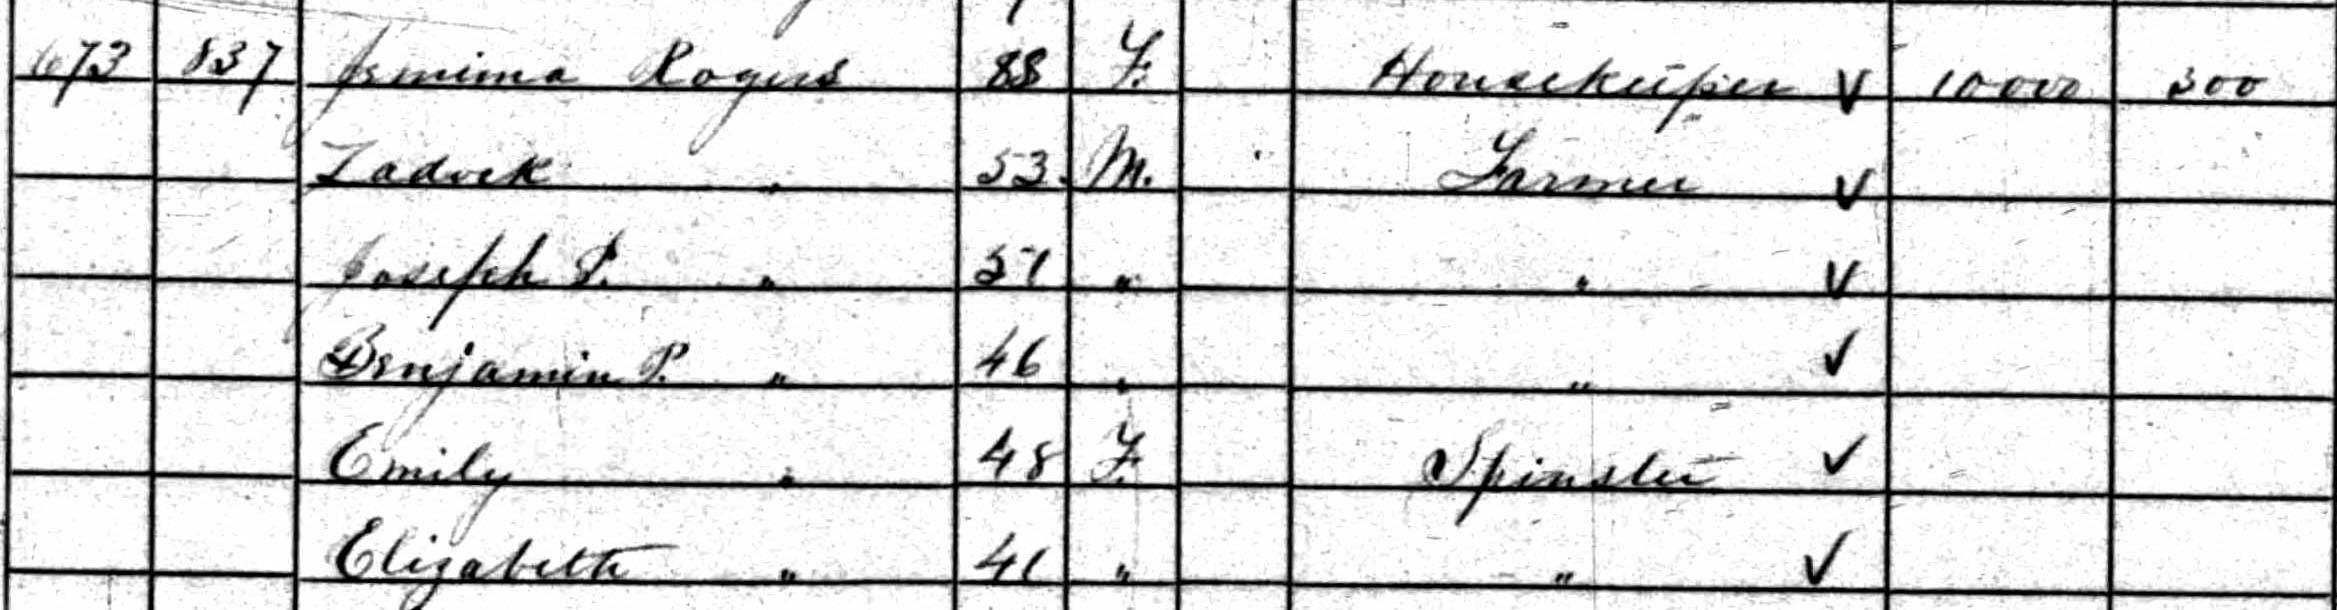 673 837 Jemima Rogers 88 F. Housekeeper ✓ 10000 300
Zadock " 53 M. Farmer ✓
Joseph P. " 51 " " ✓
Benjamin P. " 46 " " ✓
Emily " 48 F. Spinster ✓
Elizabeth " 41 " " ✓